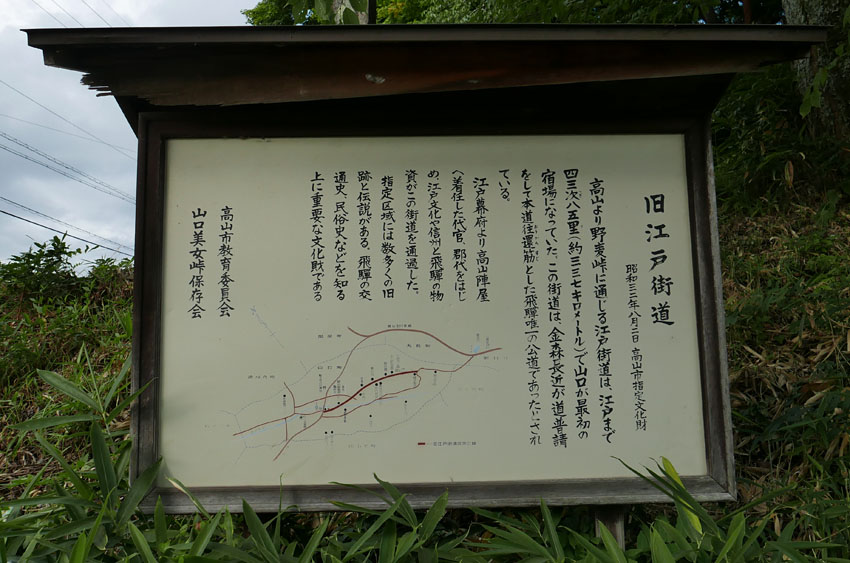 旧江戸街道
昭和三一年八月二日 高山市指定文化財
高山より野麦峠に通じる江戸街道は、江戸まで
四三次八五里（約三三七キロメートル）で山口が最初の
宿場になっていた。この街道は、金森長近が道普請
をして本道往還筋とした飛騨唯一の公道であったとされ
ている。
江戸幕府より高山陣屋
へ着任した代官、郡代をはじ
め、江戸文化や信州と飛騨の物
資がこの街道を通過した。
指定区域には数多くの旧
跡と伝説がある。飛騨の交
通史、民俗史などを知る
上に重要な文化財である
高山市教育委員会
山口美女峠保存会